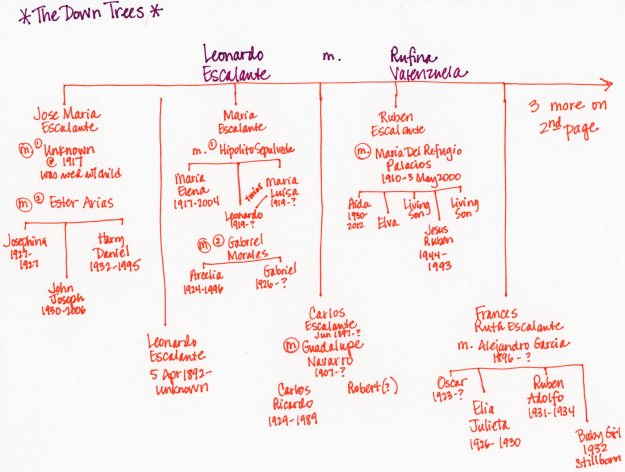 *The Down Trees*
Leonardo
Escalante
m.
Rufina
Valenzuela
3 more on
2nd page
Jose Maria
Escalante
m. 1 Unknown
@ 1917
was wed w/ child
m. 2 Ester Arias
Josephina
1927-
1927
John
Joseph
1930-2006
Harry
Daniel
1932-1995
Leonardo
Escalante
5 Apr 1892-
unknown
Maria
Escalante
m. 1 Hipolito Sepulveda
Maria
Elena
1917-2004
Leonardo
1919-?
twins
Maria
Luisa
1919-?
m. 2 Gabriel
Morales
Arcelia
1924-1996
Gabriel
1926-?
Carlos
Escalante
Jun 1897-?
m. Guadalupe
Navarro
1907-?
Carlos
Ricardo
1929-1989
Robert(?)
Ruben
Escalante
m. Maria Del Refugio
Palacios
1910-3 May 2000
Aida
1930-
2012
Elva
Living
Son
Jesus
Ruben
1944-
1993
Living
Son
Frances
Ruth Escalante
m. Alejandro Garcia
1896-?
Oscar
1923-?
Elia
Julieta
1926-1930
Ruben
Adolfo
1931-1934
Baby Girl
1932
Stillborn